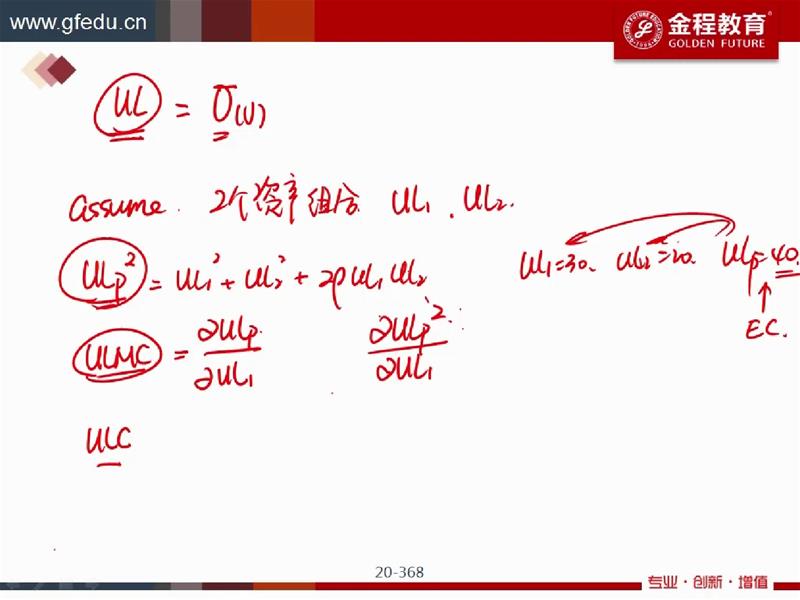 www.gfedu.cn
金程教育
GOLDEN FUTURE
UL = σ(U)
assume. 2个资产组合 UL₁ . UL₂.
ULp² = UL₁² + UL₂² + 2ρUL₁UL₂
UL₁=30. UL₂=20. ULp=40.
EC.
ULMC = ∂ULp/∂UL₁ ∂ULp²/∂UL₁
ULC
20-368
专业·创新·增值